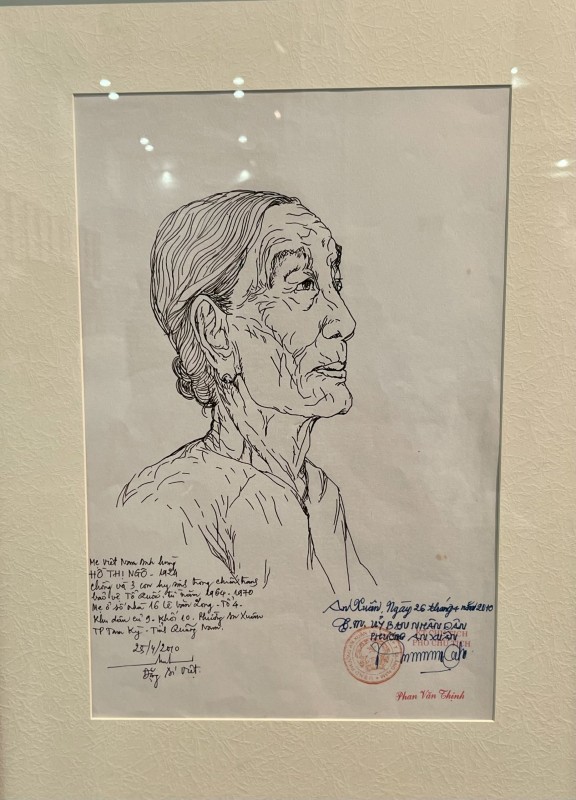 Mẹ Việt Nam Anh hùng
HỒ THỊ NGÔ - 1924
chồng và 3 con hy sinh trong chiến tranh
bảo vệ Tổ Quốc từ năm 1964-1970
Mẹ ở số nhà 16 Lê Văn Long - Tổ 4.
Khu dân cư 9 - Khối 10. Phường An Xuân
TP Tam Kỳ - Tỉnh Quảng Nam.
25/4/2010
Đặng Ái Việt.
An Xuân, Ngày 26 tháng 4 năm 2010
T.M. UỶ BAN NHÂN DÂN
PHƯỜNG AN XUÂN
PHÓ CHỦ TỊCH
Phan Văn Thịnh